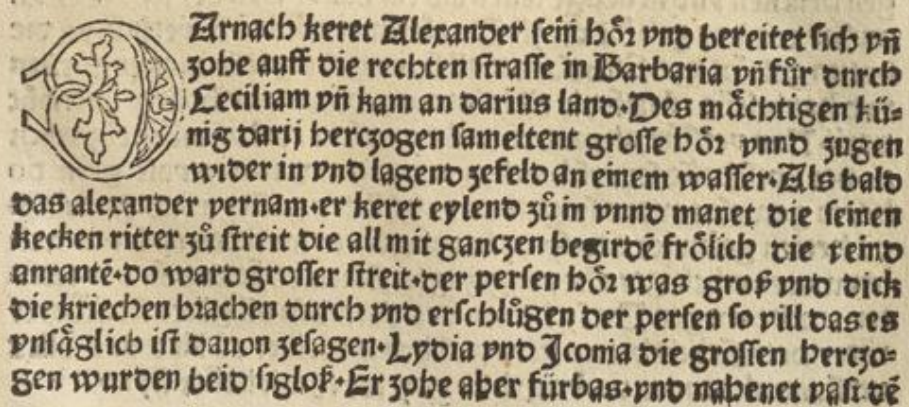 DArnach keret Alexander sein hör vnd bereitet sich vñ
zohe auff die rechten strasse in Barbaria vñ fůr durch
Ceciliam vñ kam an darius land·Des mächtigen kü-
nig darij herczogen sameltent grosse hör vnnd zugen
wider in vnd lagend zefeld an einem wasser·Als bald
das alexander vernam·er keret eylend zů im vnnd manet die seinen
kecken ritter zů streit die all mit ganczen begirdē frölich die veind
anrantē·do ward grosser streit·der persen hör was groß vnd dick
die kriechen brachen durch vnd erschlůgen der persen so vill das es
vnsäglich ist dauon zesagen·Lydia vnd Iconia die grossen herczo-
gen wurden beid sigloß·Er zohe aber fürbas·vnd nahenet vast dē